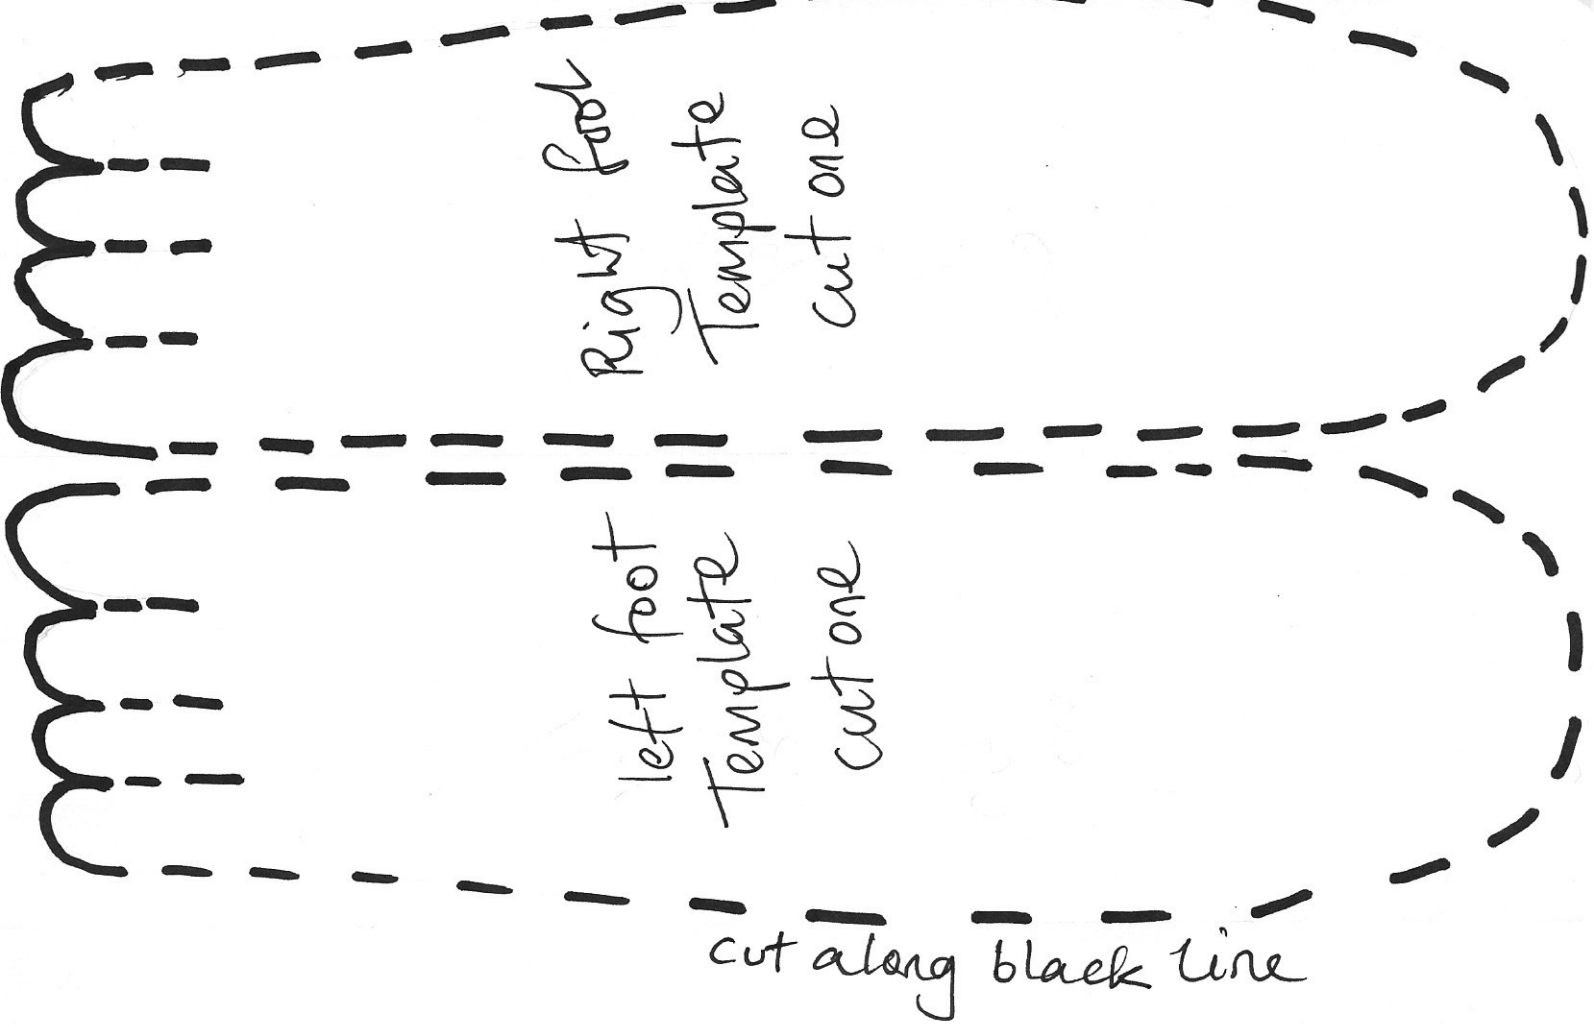 Right foot
Template
cut one
left foot
Template
cut one
cut along black line